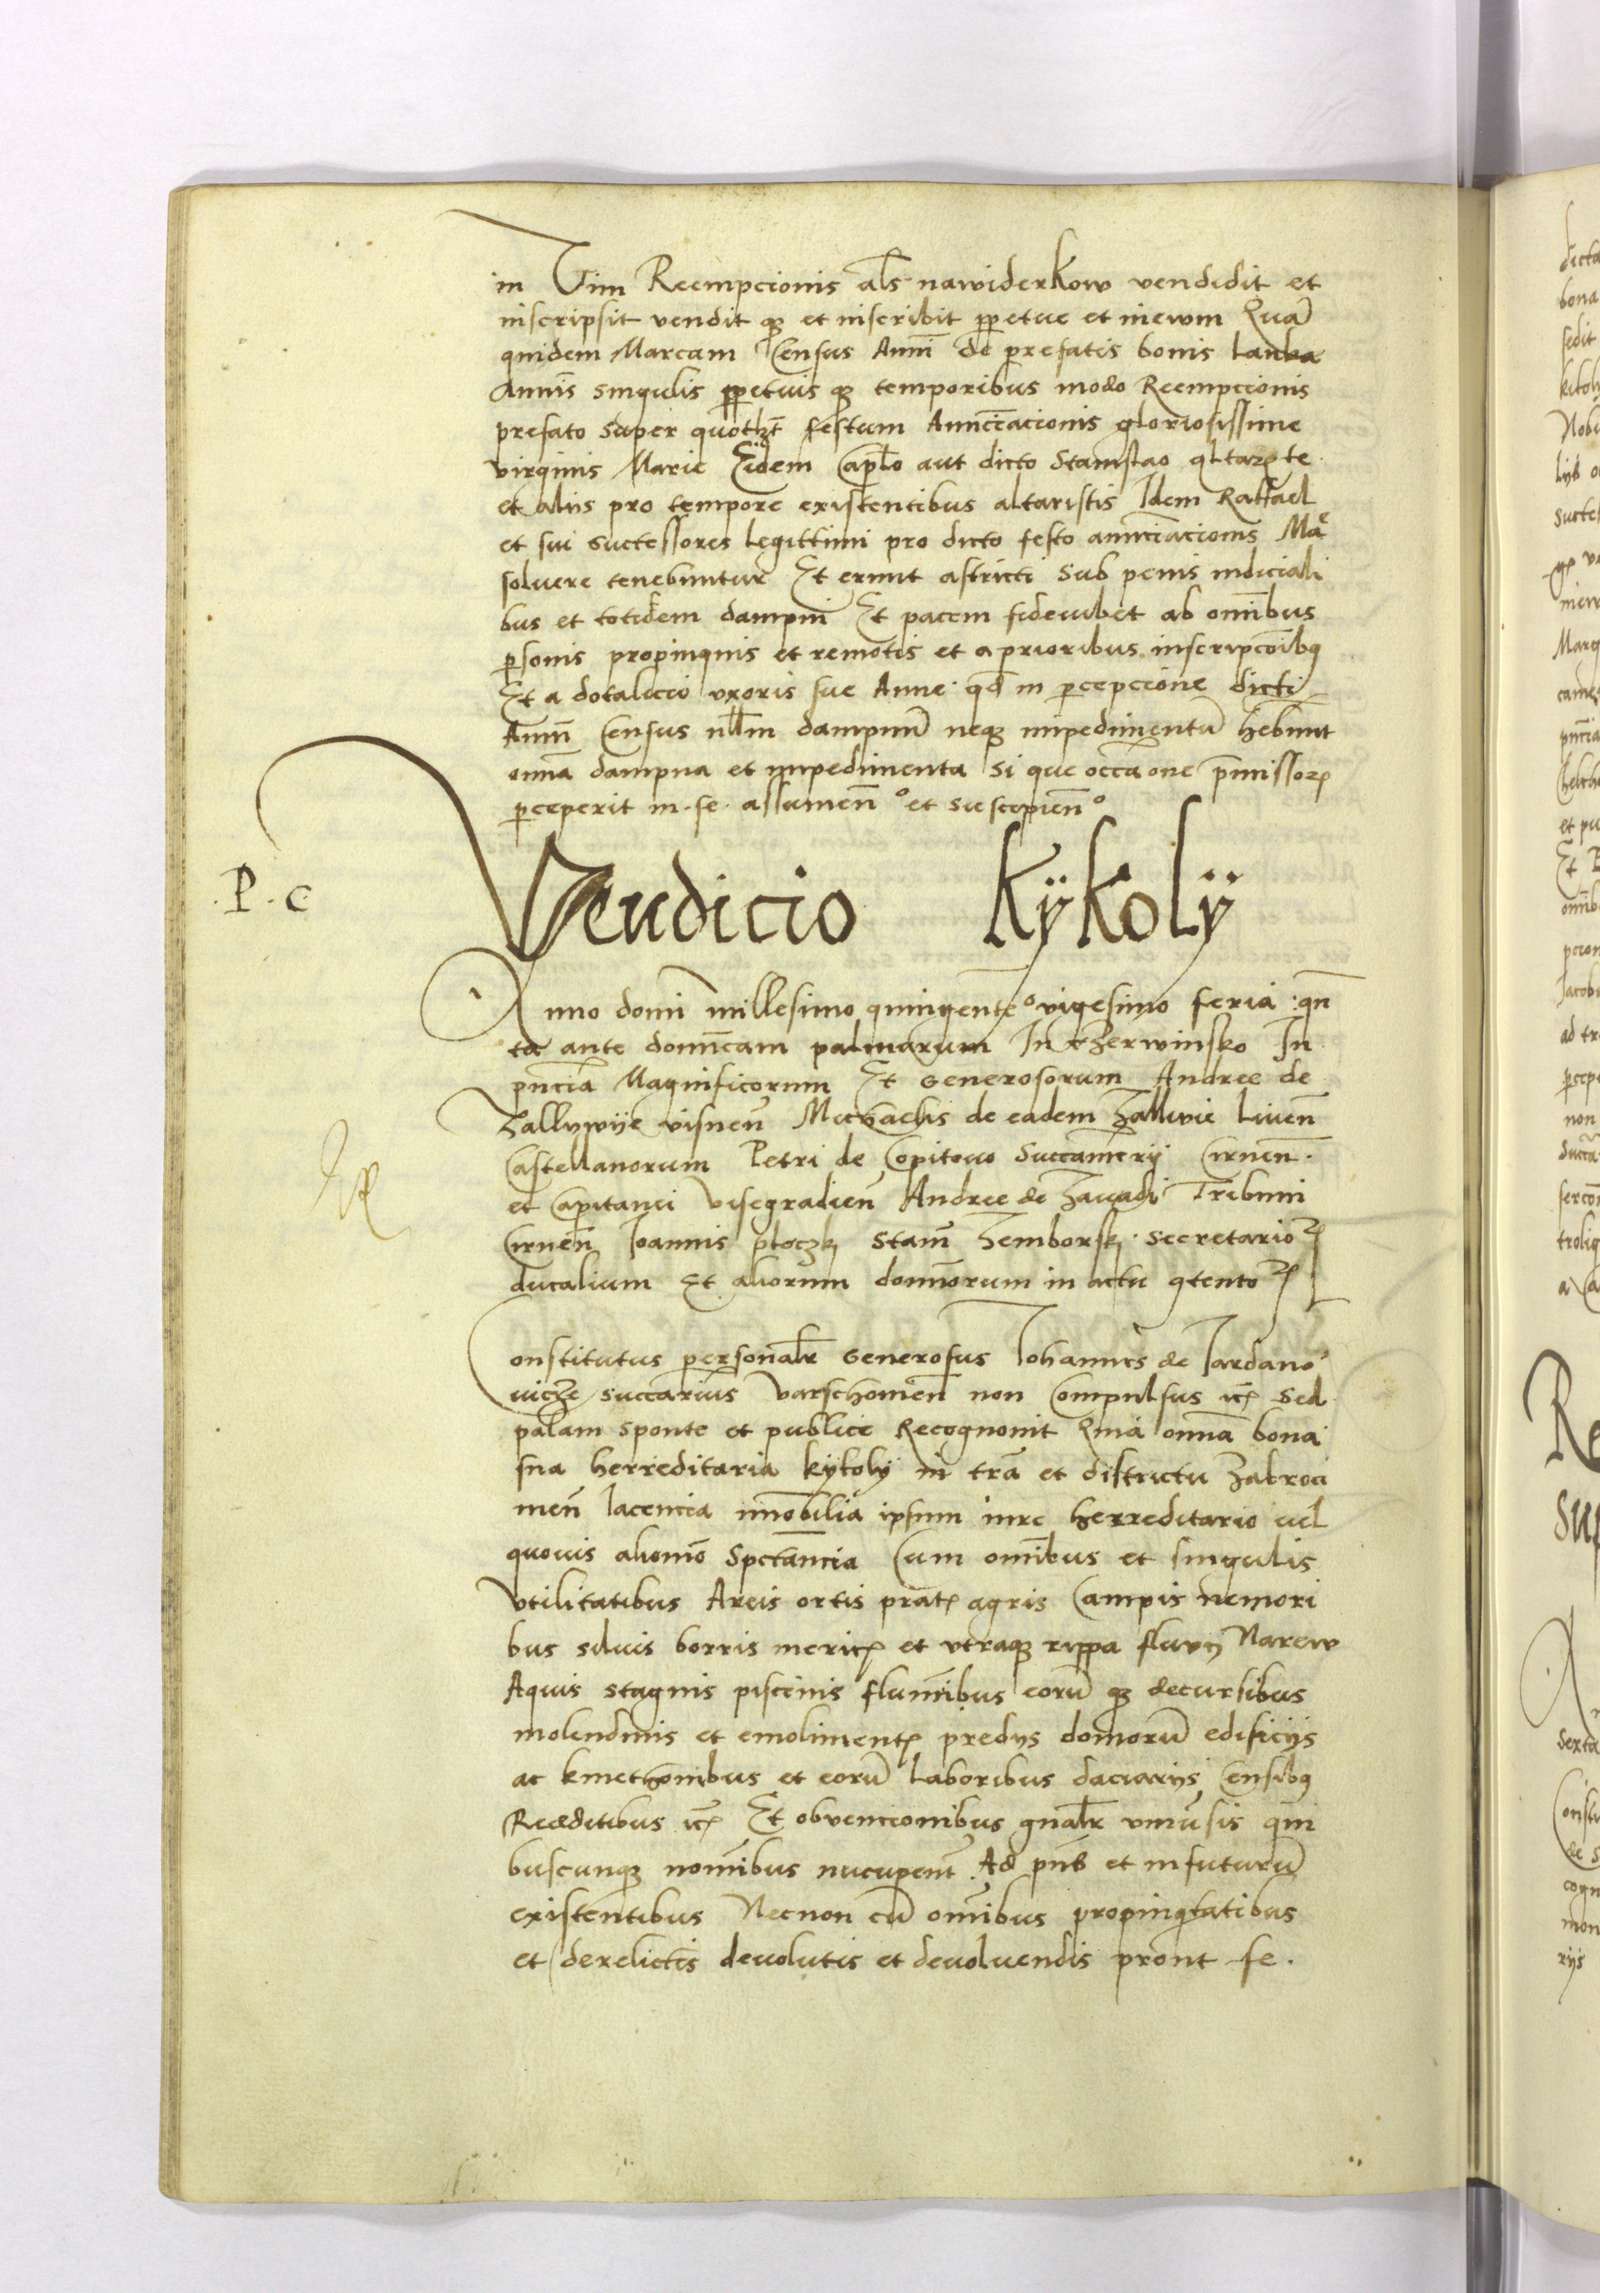 in Vim Reempcionis als nawiderkow vendidit et
inscripsit vendit qȝ et inscribit ppetue et in ewm Quā
quidem Marcam Census Anni de prefatis bonis Lanka
Annis singulis ppetuis qȝ temporibus modo Reempcionis
prefato super quotlȝt festum Annūciacionis gloriosissime
virginis Marie Eidem Caplo aut dicto Stanislao altariste
et aliis pro tempore existentibus altaristis Idem Raffael
et sui successores legittimi pro dicto festo annūciacionis Mae
soluere tenebuntur Et erunt astricti sub penis iudiciali
bus et totidem dampni Et pacem fideiubet ab omībus
psonis propinquis et remotis et a prioribus inscripcoībus
Et a dotalicio uxoris sue Anne qd in pcepcione dicti
Annū Census nllm dampnū neqȝ impedimentū hebunt
omnia dampna et impedimenta si que occaone pmissorꝝ
pceperit in se assumen̄ et suscepien̄
P. C
Vendicio Kÿkolÿ
Anno domi millesimo quingente° vigesimo feria quī
ta ante dominicam palmarum In Czerwinsko In
pn̄cia Magnificorum Et Generosorum Andree de
Zallywÿe visnen̄ Michaelis de eadem Zalliwie Liuen̄
Castellanorum Petri de Copitowo Succamerÿ Cirnen̄
et Capitanei visegradien̄ Andree de Zawadi Tribuni
Cirnen̄ Joannis ploczkj Stanī Zemborskj secretarioꝝ
ducalium Et aliorum dominorum in actu ꝯtentoꝝ
Constitutus personalr Generosus Johannes de Jardano
wicze succarius varschouien̄ non Compulsus etc̄ sed
palam sponte et publice Recognouit Quia omnia bona
sua herreditaria kÿkolÿ in tra et districtu Zakroci
men̄ Iacencia imobilia ipsum iure herreditario uel
quouis aliomo spectancia Cum omībus et singulis
vtilitatibus Areis ortis pratꝭ agris Campis nemori
bus siluis borris mericꝭ et vtraqȝ rippa fluvÿ Narew
Aquis stagnis piscinis fluminibus eorū qȝ decursibus
molendinis et emolimentꝭ predÿs domorū edificÿs
ac kmethonibus et eorū laboribus daciarÿs Censibꝰ
Redditibus etc̄ Et obvencionibus gnalr vniūsis qui
buscunqȝ nomībus nucupent Ad pn̄s et in futurū
existentibus Necnon cū omībus propinqtatibus
et derelictis deuolutis et deuoluendis prout se